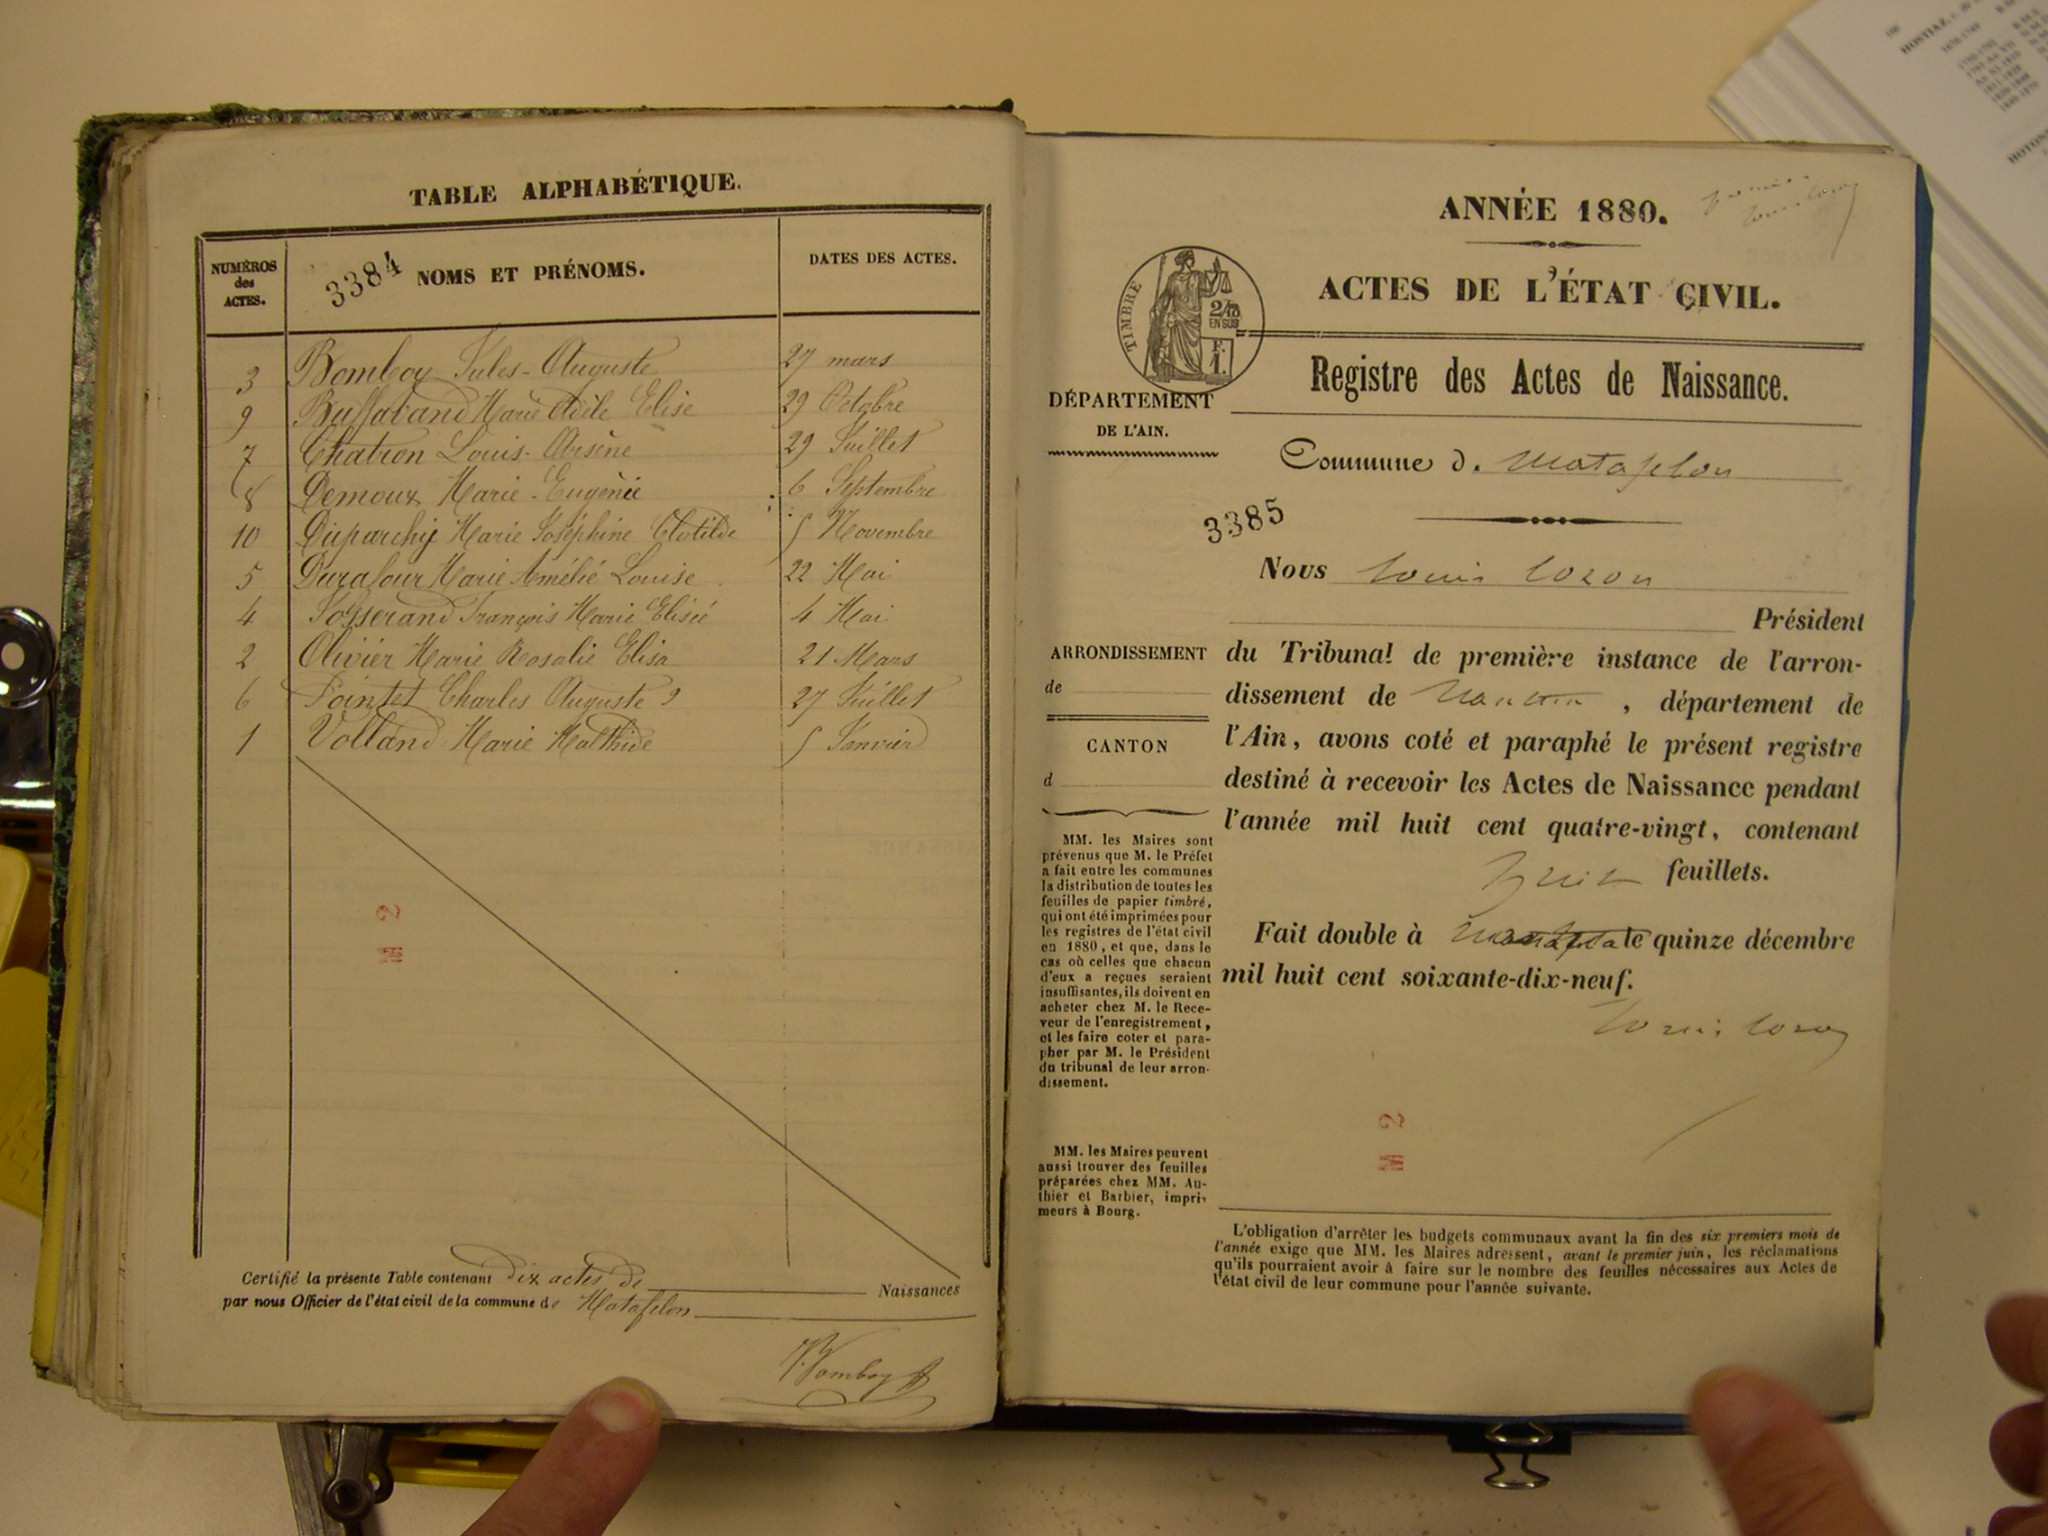 TABLE ALPHABÉTIQUE.
NUMÉROS des ACTES.
3384
NOMS ET PRÉNOMS.
DATES DES ACTES.
3 Bomboy Jules-Auguste 27 mars
9 Buffavand Marie Adèle Elise 29 Octobre
7 Chatron Louis-Arsène 29 Juillet
8 Demoux Marie-Eugénie 6 Septembre
10 Duparchy Marie Joséphine Clotilde 5 Novembre
5 Durafour Marie Amélie Louise 22 Mai
4 Josserand François Marie Elisée 4 Mai
2 Olivier Marie Rosalie Elisa 21 Mars
6 Pointet Charles Auguste 27 Juillet
1 Volland Marie Mathide 5 Janvier
2 M
Certifié la présente Table contenant dix actes de Naissances
par nous Officier de l'état civil de la commune de Matafelon
Bomboy
ANNÉE 1880.
ACTES DE L'ÉTAT CIVIL.
TIMBRE
2/10
EN SUS
F.
1.
Registre des Actes de Naissance.
DÉPARTEMENT
DE L'AIN.
Commune d. Matafelon
3385
Nous
Président
ARRONDISSEMENT
de
CANTON
d
du Tribunal de première instance de l'arron-
dissement de Nantua, département de
l'Ain, avons coté et paraphé le présent registre
destiné à recevoir les Actes de Naissance pendant
l'année mil huit cent quatre-vingt, contenant
huit feuillets.
Fait double à le quinze décembre
mil huit cent soixante-dix-neuf.
MM. les Maires sont
prévenus que M. le Préfet
a fait entre les communes
la distribution de toutes les
feuilles de papier timbré,
qui ont été imprimées pour
les registres de l'état civil
en 1880, et que, dans le
cas où celles que chacun
d'eux a reçues seraient
insuffisantes, ils doivent en
acheter chez M. le Rece-
veur de l'enregistrement,
et les faire coter et para-
pher par M. le Président
du tribunal de leur arron-
dissement.
MM. les Maires peuvent
aussi trouver des feuilles
préparées chez MM. Au-
thier et Barbier, impri-
meurs à Bourg.
2 M
L'obligation d'arrêter les budgets communaux avant la fin des six premiers mois de
l'année exige que MM. les Maires adressent, avant le premier juin, les réclamations
qu'ils pourraient avoir à faire sur le nombre des feuilles nécessaires aux Actes de
l'état civil de leur commune pour l'année suivante.